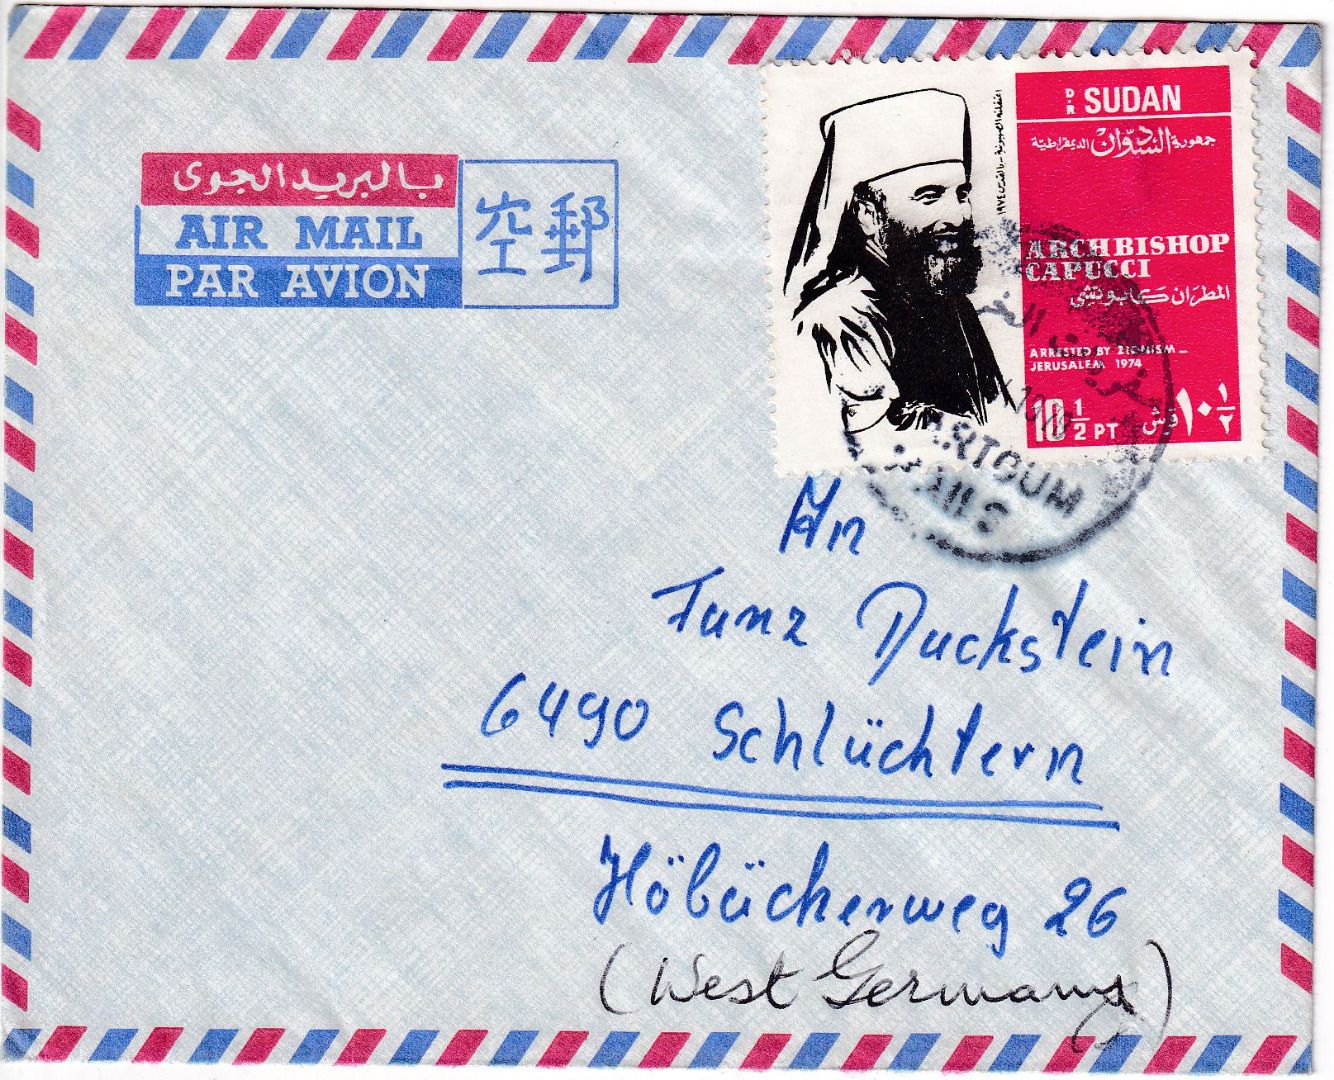 بالبريد الجوى
AIR MAIL
PAR AVION
空郵
D.R SUDAN
جمهورية السودان الديمقراطية
ARCHBISHOP
CAPUCCI
المطران كابوتشي
ARRESTED BY ZIONISM _
JERUSALEM 1974
10 1/2 PT
١٠ ١/٢
اعتقلته الصهيونية - بالقدس ١٩٧٤
ARTOUM
An
Tunz Duckstein
6490 Schlüchtern
Höbäckerweg 26
(West Germany)